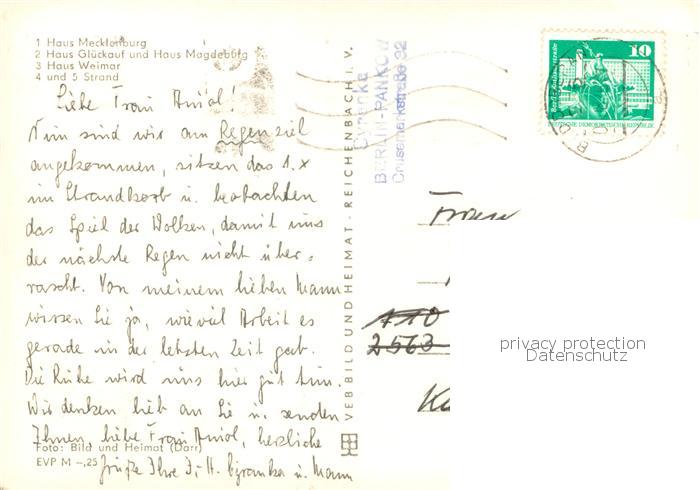 1 Haus Mecklenburg
2 Haus Glückauf und Haus Magdeburg
3 Haus Weimar
4 und 5 Strand
Liebe Frau Amiol!
Nun sind wir am Regenziel
angekommen, sitzen das 1. x
im Strandkorb u. beobachten
das Spiel der Wolken, damit uns
der nächste Regen nicht über-
rascht. Von meinem lieben Mann
wissen Sie ja, wieviel Arbeit es
gerade in der letzten Zeit gab.
Die Ruhe wird uns hier gut tun.
Wir denken lieb an Sie u. senden
Ihnen, liebe Frau Amiol, herzliche
Foto: Bild und Heimat (Darr)
EVP M -,25
Grüße Ihre I.-H. Cyranka u. Mann
VEB BILD UND HEIMAT · REICHENBACH I. V.
Cyranka
BERLIN-PANKOW
Crusemarkstraße 32
10
DEUTSCHE DEMOKRATISCHE REPUBLIK
Frau
110
2563
privacy protection
Datenschutz